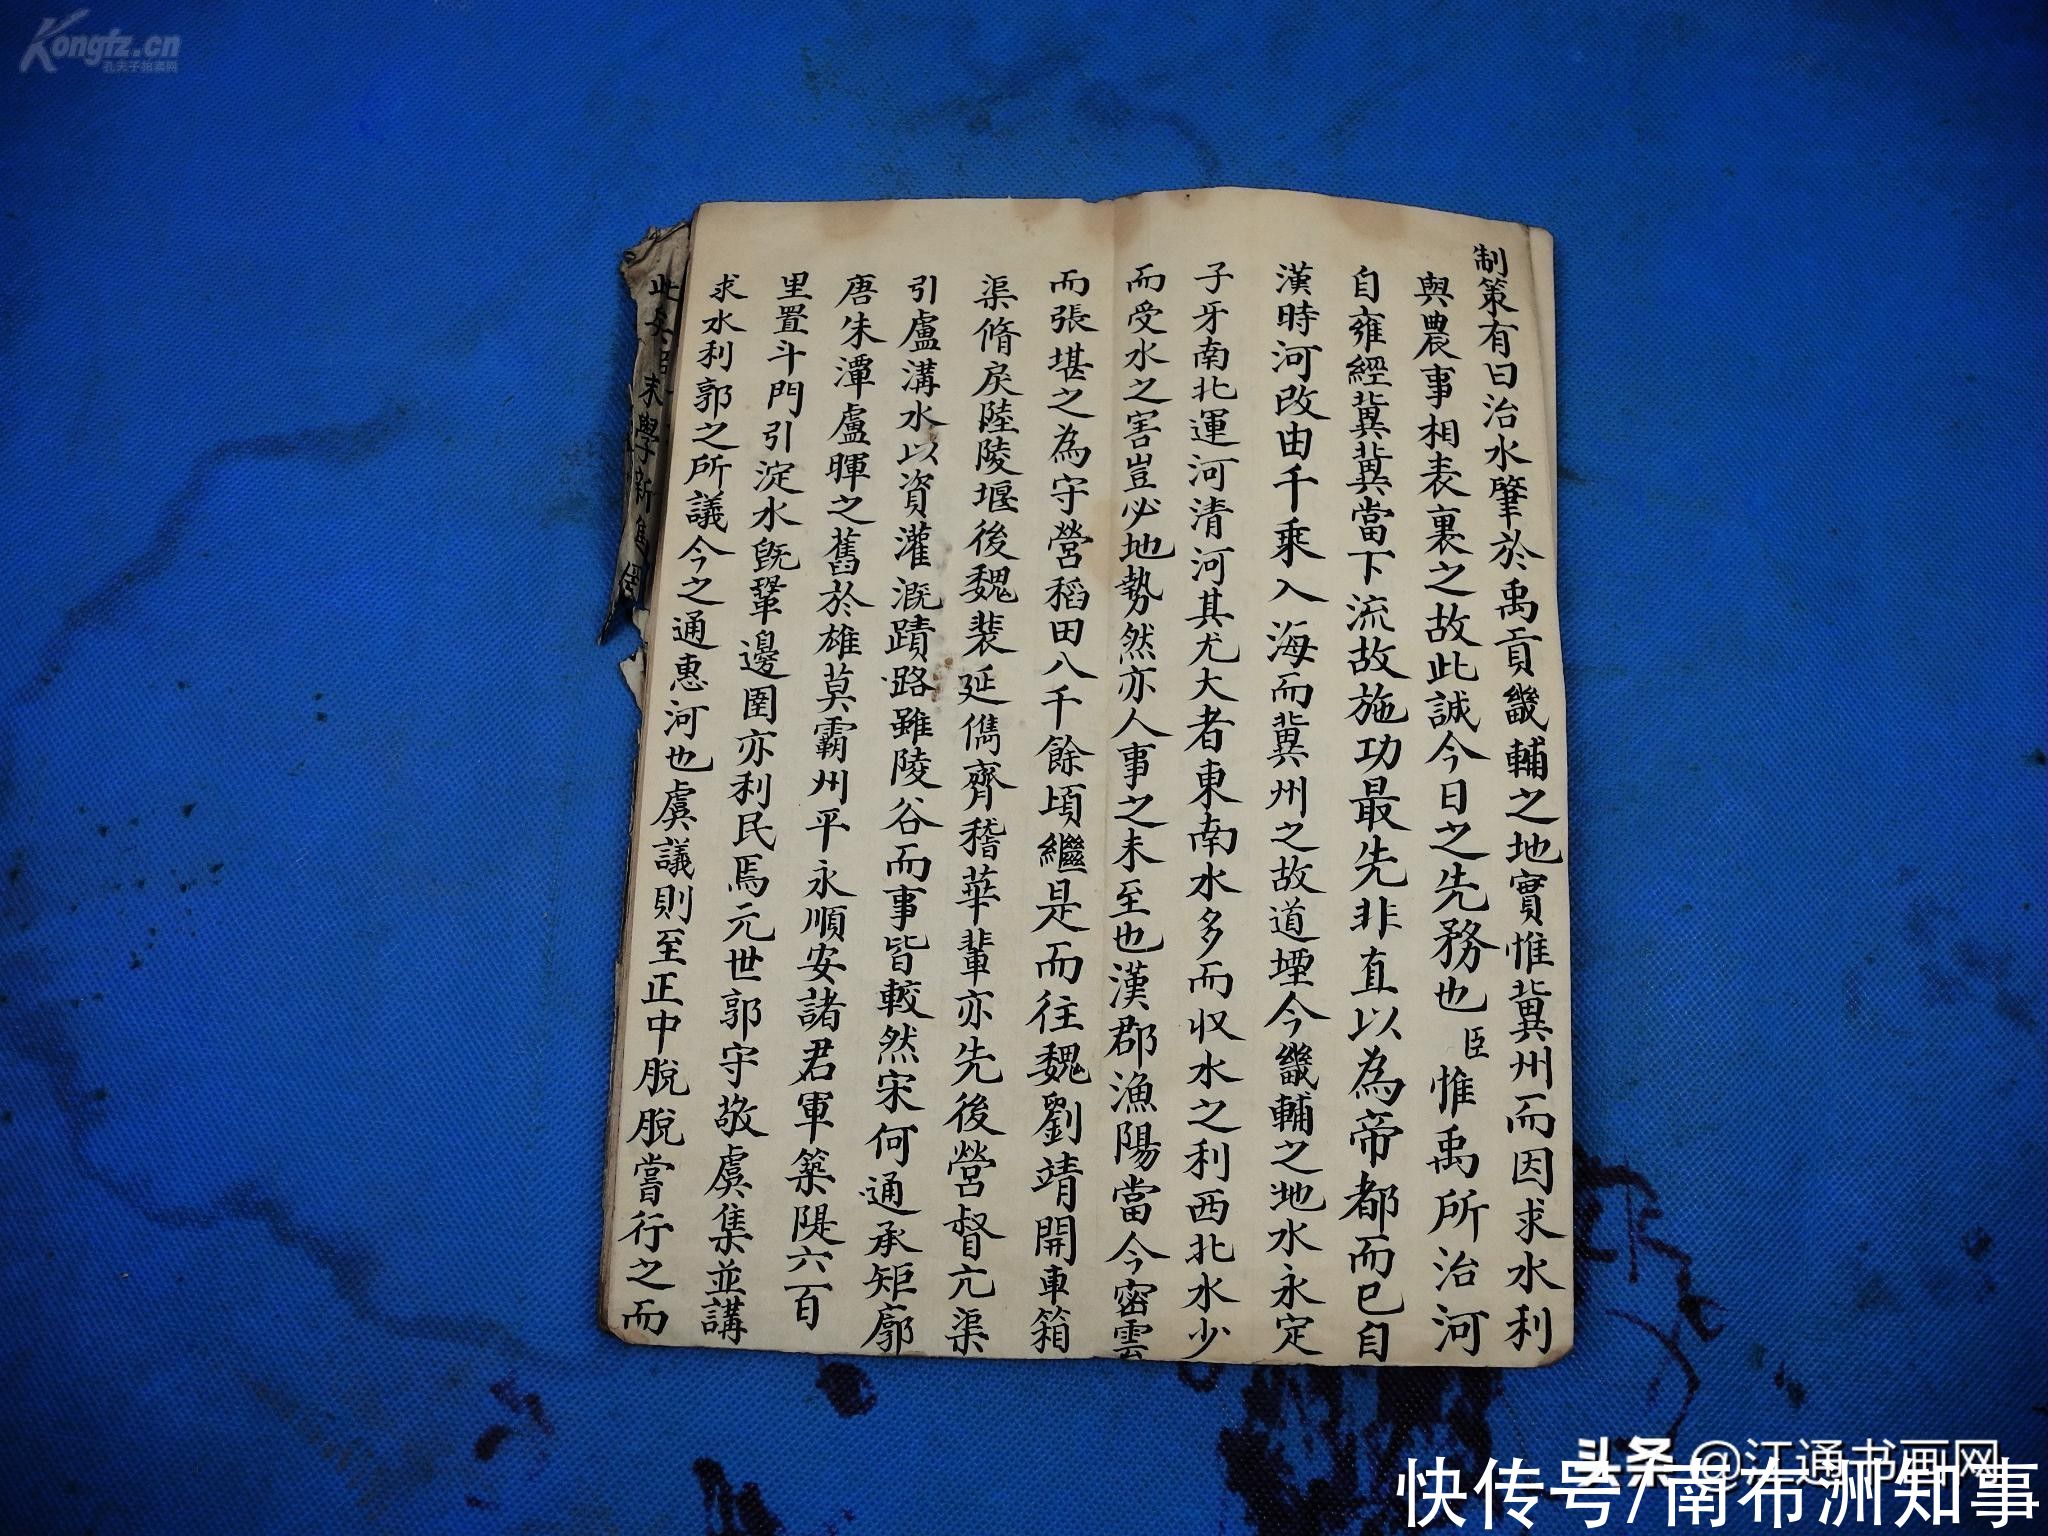 Kongfz.cn
孔夫子拍卖网
制策有曰治水肇於禹貢畿輔之地實惟冀州而因求水利
與農事相表裏之故此誠今日之先務也臣惟禹所治河
自雍經冀冀當下流故施功最先非直以為帝都而已自
漢時河改由千乘入海而冀州之故道堙今畿輔之地水永定
子牙南北運河清河其尤大者東南水多而収水之利西北水少
而受水之害豈必地勢然亦人事之未至也漢郡漁陽當今密雲
而張堪之為守營稻田八千餘頃繼是而往魏劉靖開車箱
渠脩戾陸陵堰後魏裴延儁齊嵇華輩亦先後營督亢渠
引盧溝水以資灌溉蹟路雖陵谷而事皆較然宋何通承矩廓
唐朱潭盧暉之舊於雄莫霸州平永順安諸君軍築隄六百
里置斗門引淀水既鞏邊圉亦利民焉元世郭守敬虞集並講
求水利郭之所議今之通惠河也虞議則至正中脫脫嘗行之而
此
末學新
头条@江通书画网
快传号/南布洲知事